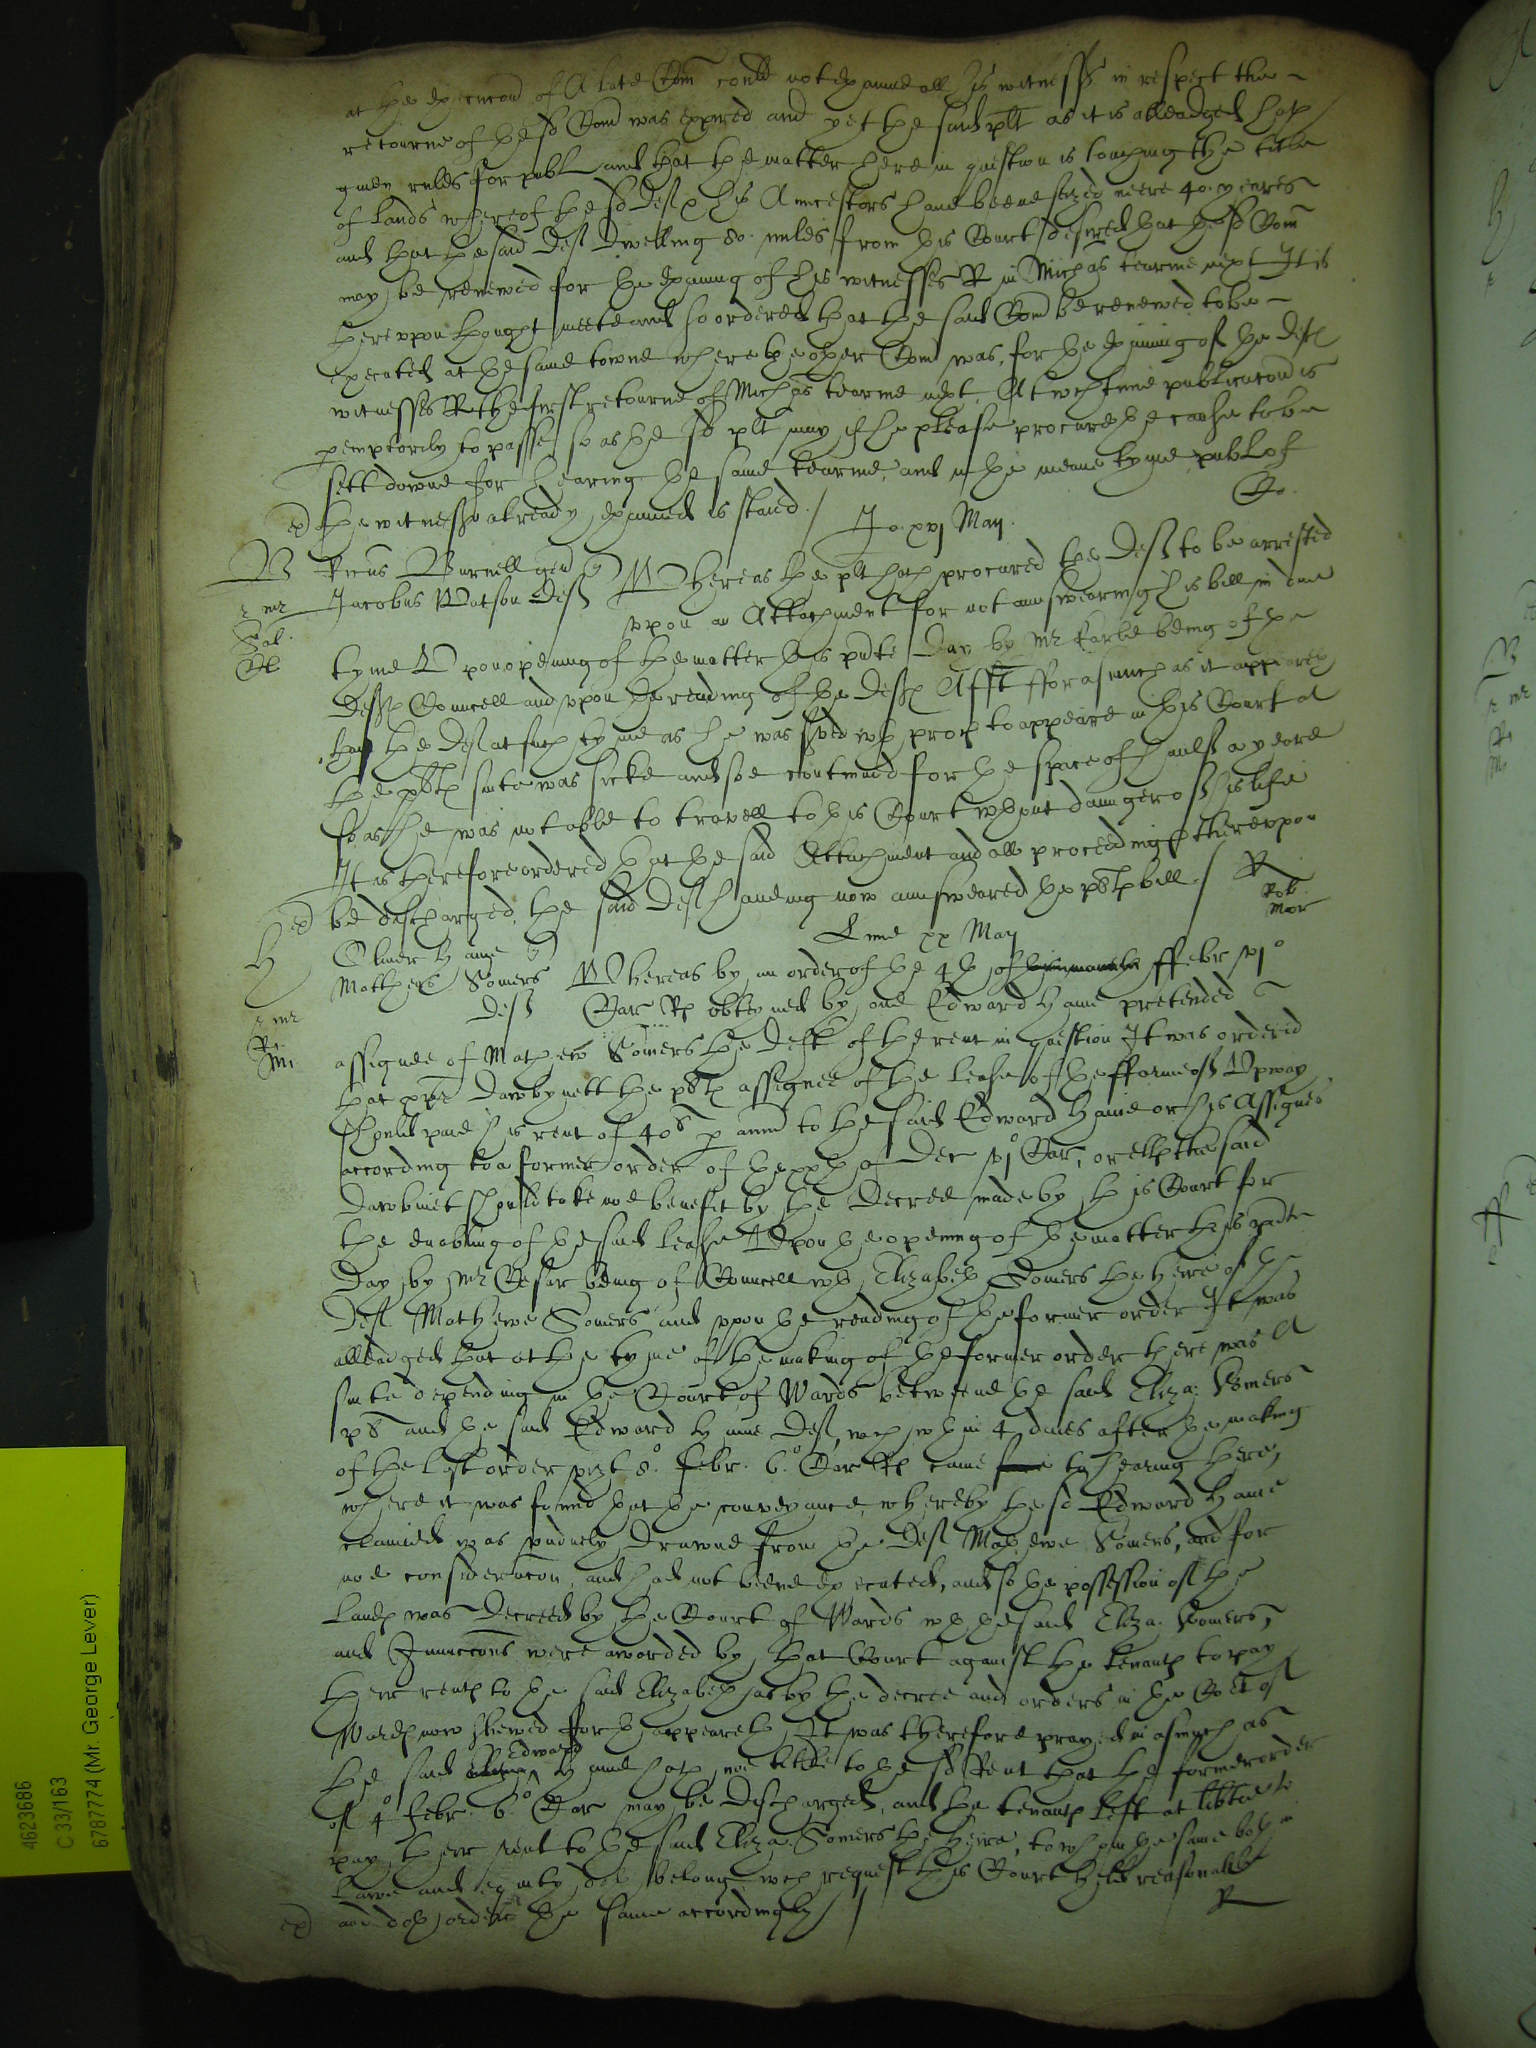 at the execucon of A late Com could not examine all his witnesses in respect the
retourne of the sd Com was expired and yet the said plt as it is alleadged hath
given rules for publ and that the matter here in question is touching the title
of lands whereof the sd deft & his Auncestors have beene seized neere 40 yeares
and that the said deft dwelling 80 miles from this Court desired that the sd Com
may be renewed for the examing of his witnesses R in Michas tearme next It is
hereuppon thought meete and so ordered that the said Com be renewed to be
executed at the same towne where the other Com was, for the exaining of the deft
witnesses R the first retourne of Michas tearme next At wch time publicacon is
pemptorily to passe so as the sd plt may if he please procure the cause to be
sett downe for hearing the same tearme, and in the meane tyme publ of
ex the witnesses already examined is staied /
Co.
Jo. xxj Maij
B Ricus Burnell gen q
Jacobus Watson deft
r mr
Sal.
Whereas the plt hath procured the deft to be arrested
uppon an Attachment for not aunswearing his bill in due
tyme Uppon opening of the matter this pnte day by Mr Earle being of the
defts Councell and uppon the reading of the defts Afft Fforasmuch as it appeareth
that the deft at such tyme as he was served wth proces to appeare in this Court at
the plts suite was sicke and soe contynued for the space of halfe a yeare
so as he was not able to travell to this Court without daunger of his life
It is therefore ordered that the said Attachment and all proceedings thereuppon
ex be discharged, the said deft haveing now aunsweared the plts bill / R
Rob
Mor
Lune xx Maij
H Oliver Hame q
Matheus Somers
deft
r mr
Whereas by an order of the 4th of Febr vjo
Car Rs obteyned by one Edward Hame pretended
assignee of Mathew Somers the deft of the rent in question It was ordered
that Darbynett the plts assignee of the lease of the Farme of Upway
should paie his rent of 40s p ann to the said Edward Hame or his Assignes
according to a former order of the xxth of Dec vjo Car, or ells the said
Darbinet should take noe benefit by the decree made by this Court for
the enabling of the said lease Uppon the opening of the matter this pnte
day by Mr Cesar being of Councell wth Elizabeth Somers the heire of the
deft Mathewe Somers and uppon the reading of the former order It was
alleadged that at the tyme of the making of the former order there was A
suite depending in the Court of Wards betweene the said Eliza: Somers
plt and the said Edward Hame deft, wch wthin 4 daies after the making
of the last order vizt 8o Febr. 6o Car Rs came to hearing there,
where it was found that the conveyance whereby the sd Edward Hame
claimed was unduely drawne from the deft Mathewe Somers, and for
noe consideracon, and had not beene executed, and so the possession of the
lands was decreed by the Court of Wards wth the said Eliza. Somers,
and Iniunccons were awarded by that Court against the tenants to pay
their rents to the said Elizabeth as by the decree and orders in the Court of
Wards now shewed forth appeareth, It was therefore prayed in asmuch as
the said Edward Hame hath noe title to the sd Rent that the former order
of 4o Febr. 6o Car may be discharged, and the tenants left at libtie to
pay their rent to the said Eliza Somers the heire, to whom the same both in
lawe and equity doth belong wch request this Court held reasonable
ex and doth order the same accordingly / R
4623686
C 33/163
6787774 (Mr. George Lever)